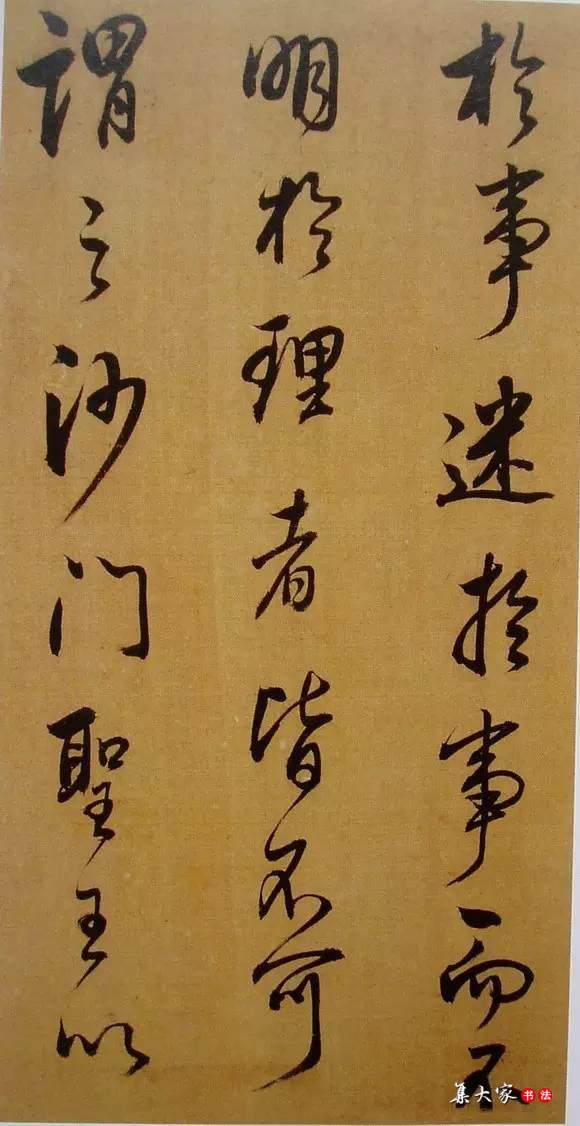 於事迷於事而不
明於理者皆不可
謂之沙门聖王以
集大家书法